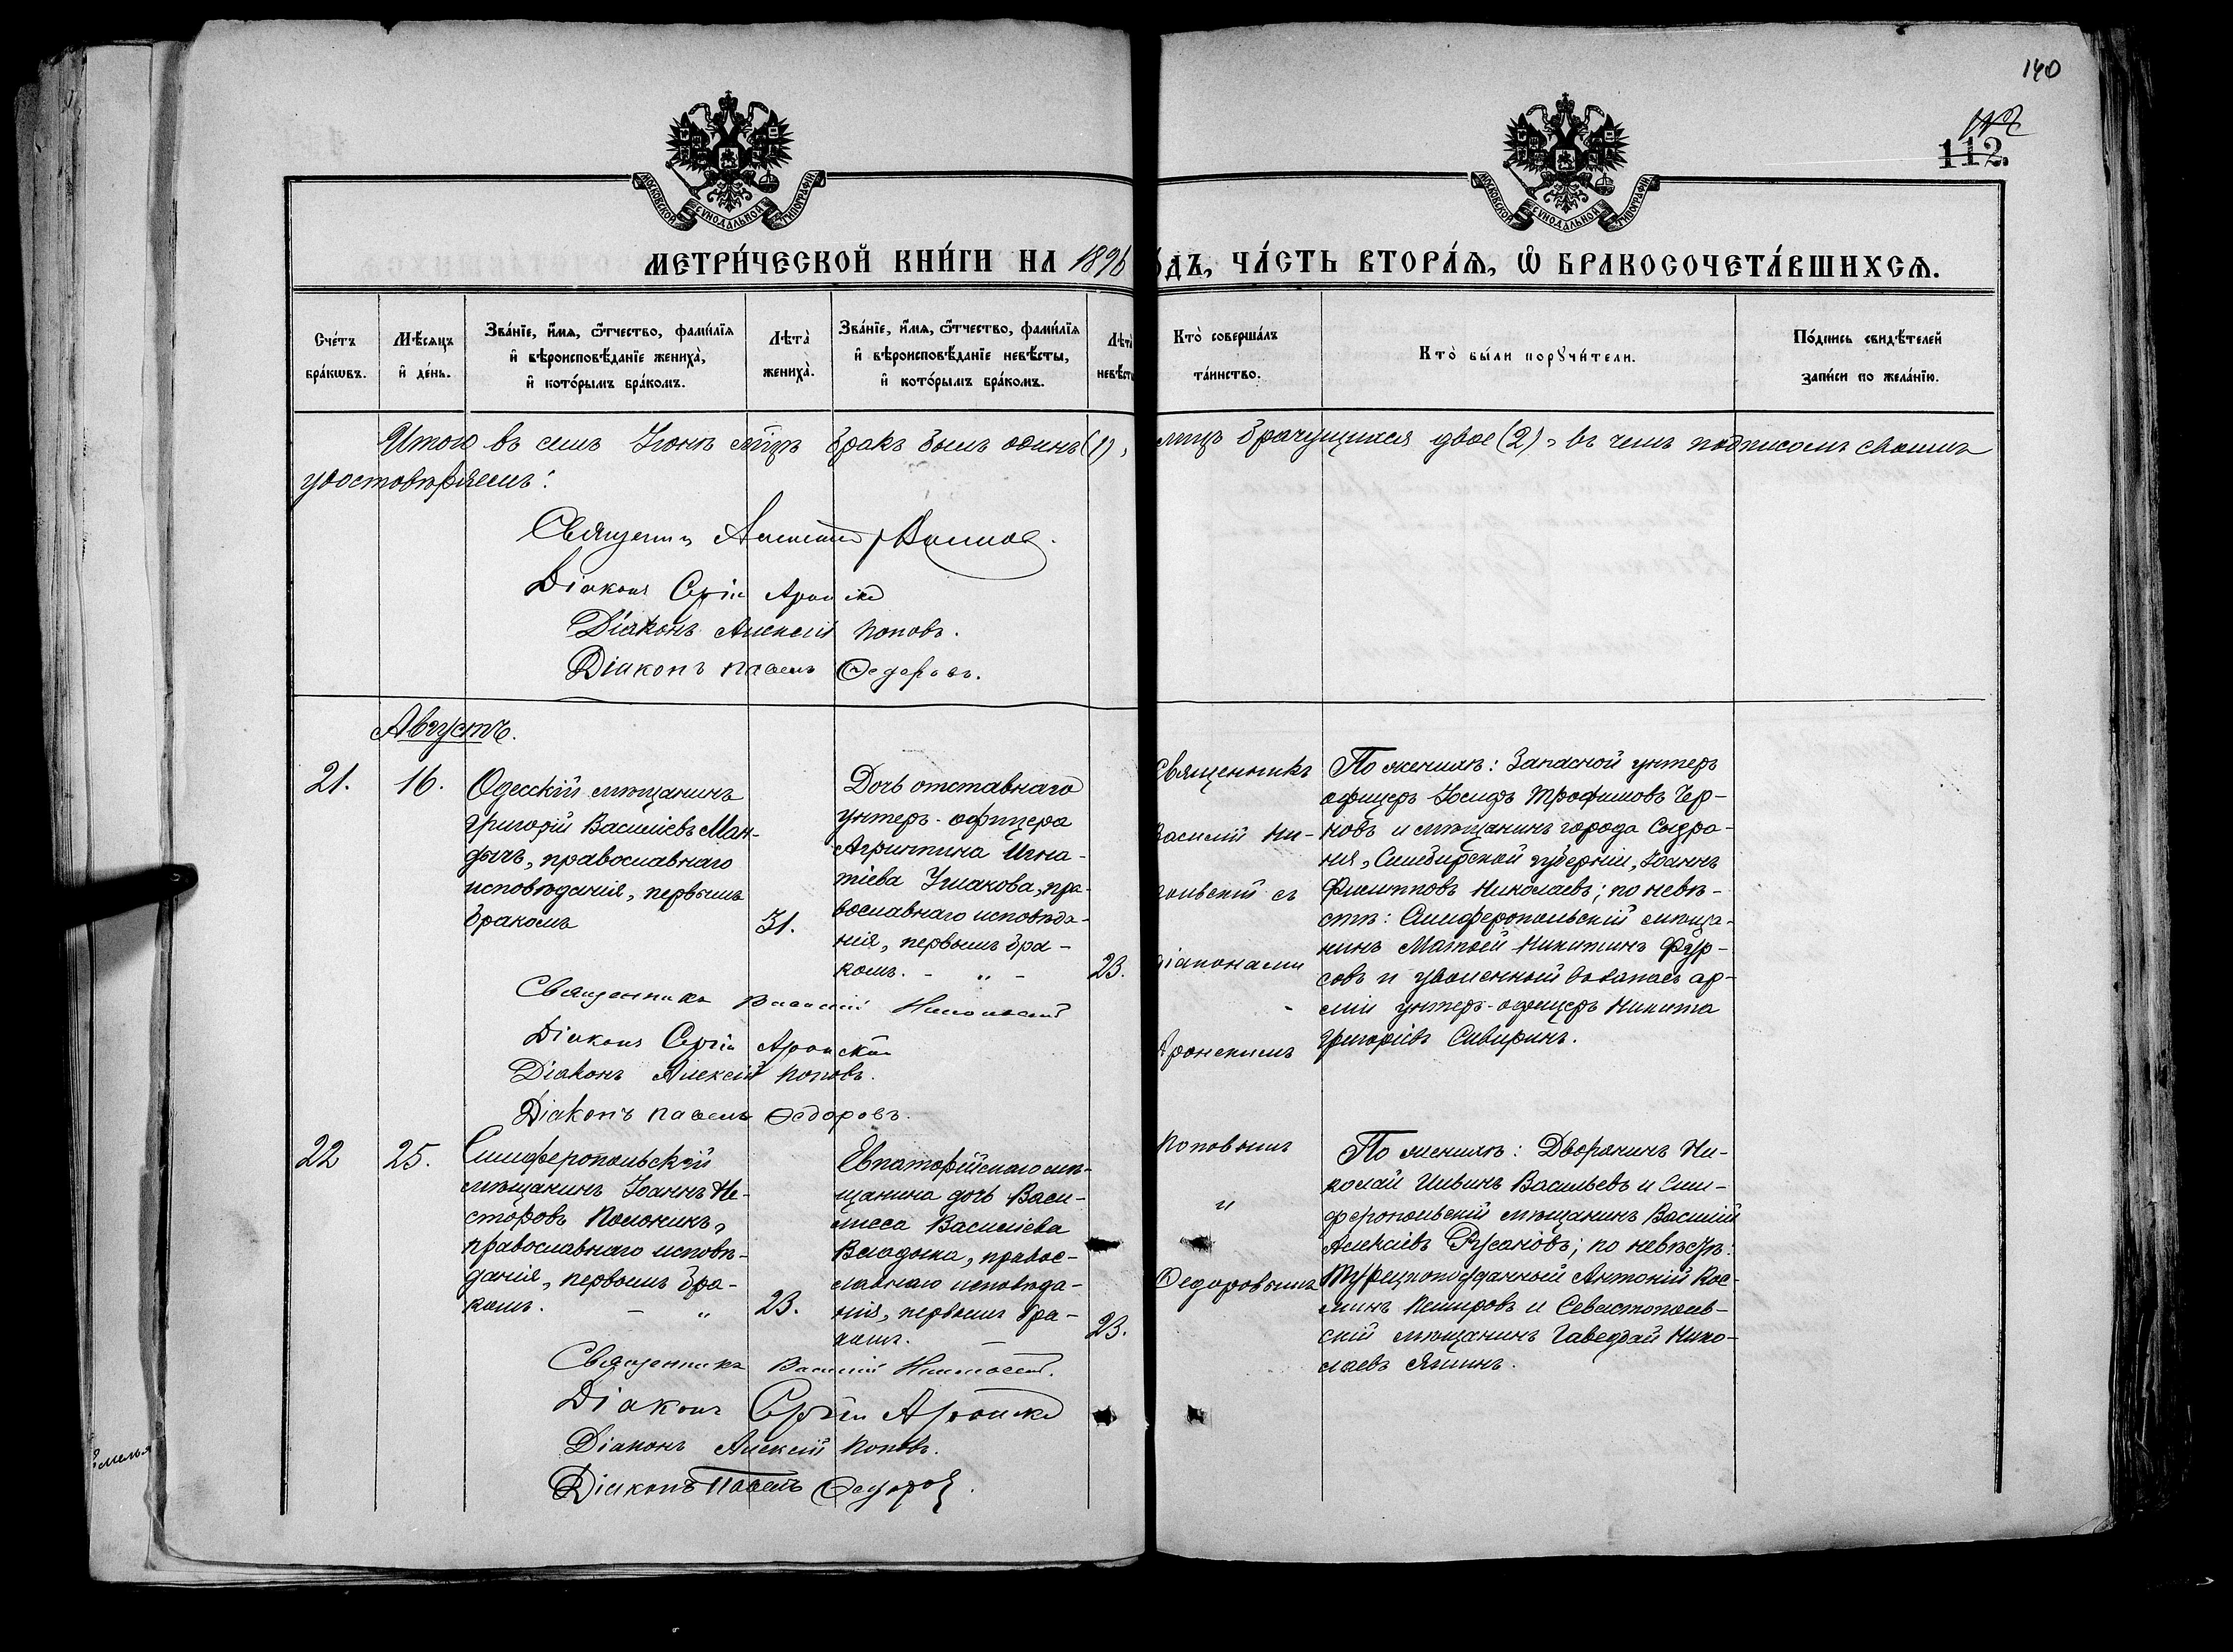 140
112
112.
МОСКОВСКОЙ СѴНОДАЛЬНОЙ ТИПОГРАФІИ
МОСКОВСКОЙ СѴНОДАЛЬНОЙ ТИПОГРАФІИ
МЕТРИ́ЧЕСКОЙ КНИ́ГИ НА 1896
о́дъ, ЧА́СТЬ ВТОРА́Ѧ, Ѡ҆ БРАКОСОЧЕТА́ВШИХСѦ.
Сче́тъ
бра́кѡвъ.
Мѣ́сѧцъ
и҆ де́нь.
Зва́нїе, и҆́мѧ, ѻ҆́тчество, фами́лїѧ
и҆ вѣроисповѣ́данїе женихà,
и҆ кото́рымъ бра́комъ.
Лѣтà
женихà.
Зва́нїе, и҆́мѧ, ѻ҆́тчество, фами́лїѧ
и҆ вѣроисповѣ́данїе невѣ́сты,
и҆ кото́рымъ бра́комъ.
Лѣтà
невѣ́сты
Кто̀ соверша́лъ
та́инство.
Кто̀ бы́ли порꙋчи́тели.
По́дпись свидѣ́телей
за́писи по жела́нїю.
Итого въ семъ Іюнѣ м-цѣ бракъ былъ одинъ (1),
лицъ брачущихся двое (2), въ чемъ подписомъ своимъ
удостовѣряемъ:
Священникъ
Діаконъ Сергій Аронскій
Діаконъ Алексій Поповъ.
Діаконъ Павелъ Ѳедоровъ.
Августъ.
21. 16.
Одесскій мѣщанинъ
Григорій Василіевъ Ман-
дычъ, православнаго
исповѣданія, первымъ
бракомъ
31.
Дочь отставнаго
унтеръ-офицера
Агриппина Игна-
тіева Ушакова, пра-
вославнаго исповѣда-
нія, первымъ бра-
комъ. - „ -
23.
Священникъ
Василій Ни-
кольскій съ
діаконами
Аронскимъ
Поповымъ
и
Ѳедоровымъ
По женихѣ: Запасной унтеръ
офицеръ Іосифъ Трофимовъ Чер-
новъ и мѣщанинъ города Сызра-
ня, Симбирской губерніи, Іоаннъ
Филипповъ Николаевъ; по невѣ-
стѣ: Симферопольскій мѣща-
нинъ Матѳей Никитинъ Фур-
совъ и уволенный въ запасъ ар-
міи унтеръ-офицеръ Никита
Григоріевъ Сивиринъ.
Священникъ Василій Никольскій
Діаконъ Сергій Аронскій
Діаконъ Алексій Поповъ.
Діаконъ Павелъ Ѳедоровъ.
22 25.
Симферопольскій
мѣщанинъ Іоаннъ Не-
сторовъ Полоникъ,
православнаго исповѣ-
данія, первымъ бра-
комъ. - „
23.
Евпаторійскаго мѣ-
щанина дочь Васи-
лисса Василіева
Владыка, правос-
лавнаго исповѣда-
нія, первымъ бра-
комъ. -
23.
По женихѣ: Дворянинъ Ни-
колай Ильинъ Васильевъ и Сим-
феропольскій мѣщанинъ Василій
Алексіевъ Русановъ; по невѣстѣ:
Турецкоподданный Антоній Кос-
минъ и Севастополь-
скій мѣщанинъ Нико-
лаевъ Яшинъ.
Священникъ Василій Никольскій.
Діаконъ Сергій Аронскій
Діаконъ Алексій Поповъ.
Діаконъ Павелъ Ѳедоровъ.